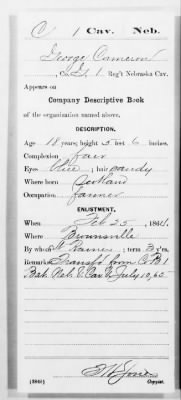 C | 1 | Cav. | Neb.
George Cameron
, Co. G, 1 Reg't Nebraska Cav.
Appears on
Company Descriptive Book
of the organization named above.
DESCRIPTION.
Age 18 years; height 5 feet 6 inches.
Complexion Fair
Eyes Blue; hair Sandy
Where born Scotland
Occupation Farmer
ENLISTMENT.
When Feb 25, 1864.
Where Brownsville
By whom ; term 3 y'rs.
Remarks: Transf'd from Co. B, 1
Bat. Neb. V. Cav. July 10, 65
Copyist.